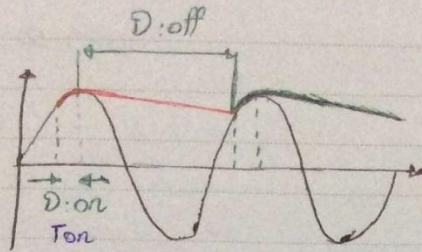 D:off
D:on
Ton